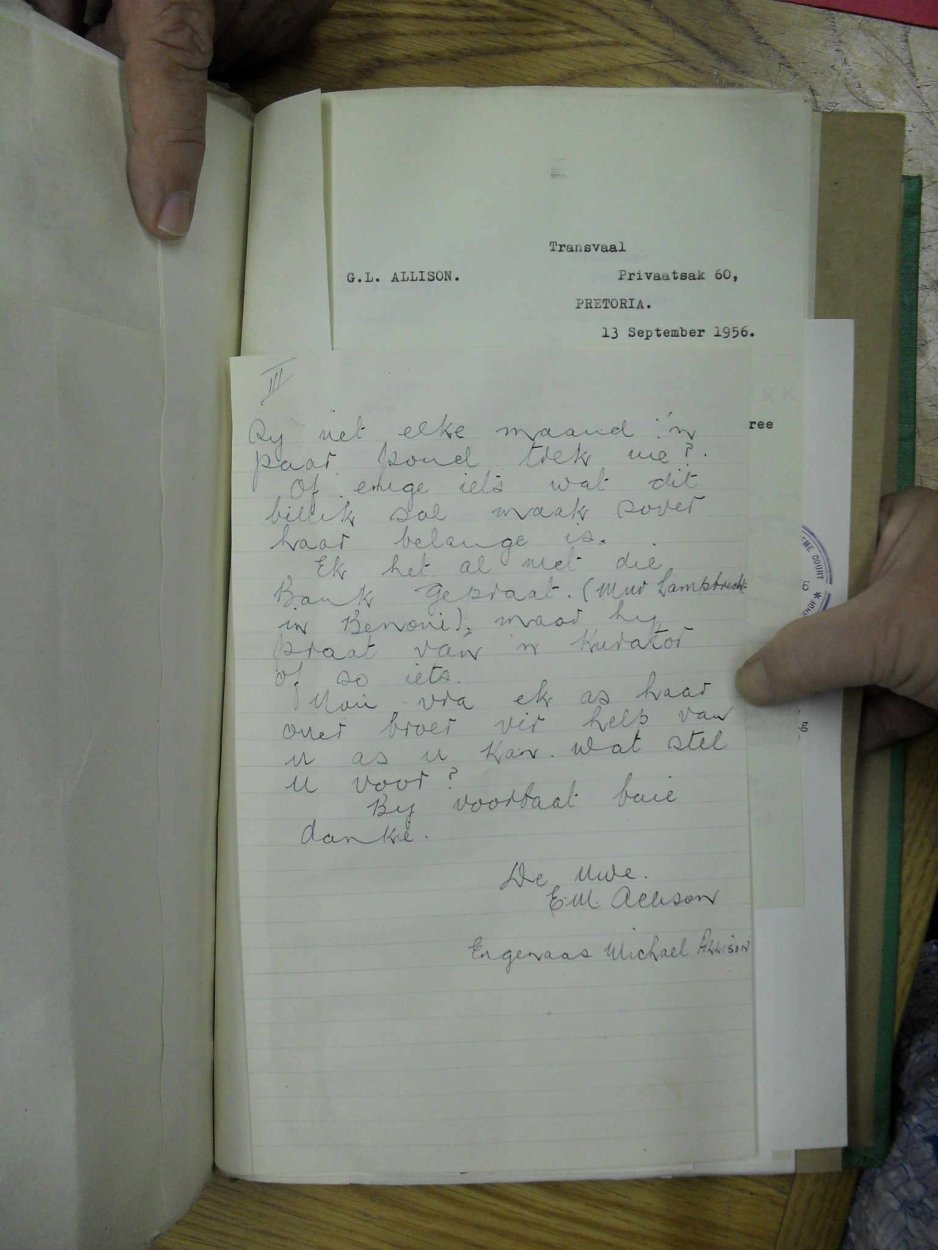 Transvaal
G.L. ALLISON. Privaatsak 60,
PRETORIA.
13 September 1956.
ERK
ree
III
Sy net elke maand 'n
paar pond trek nie?.
Of enige iets wat dit
billik sal maak sover
haar belange is.
Ek het al met die
Bank gepraat. (Mnr Lamprecht
in Benoni), maar hy
praat van 'n Kurator
of so iets.
Nou vra ek as haar
ouer broer vir help van
u as u kan. Wat stel
u voor?
By voorbaat baie
danke.
De Uwe.
E.M. Allison
Engenaas Michael Allison